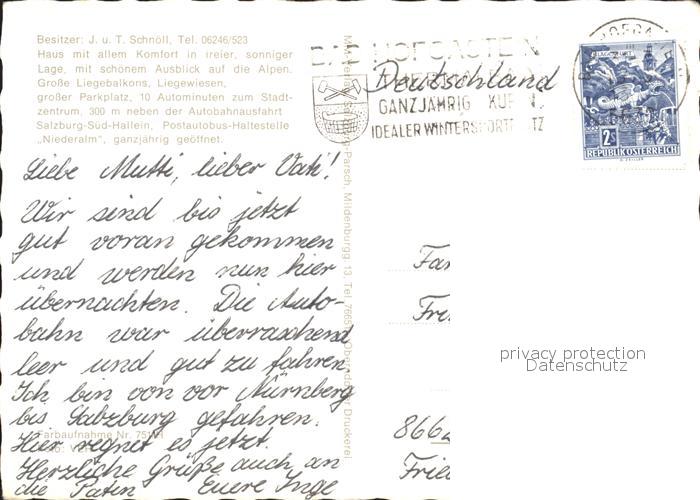 Besitzer: J. u. T. Schnöll, Tel. 06246/523
Haus mit allem Komfort in freier, sonniger
Lage, mit schönem Ausblick auf die Alpen.
Große Liegebalkons, Liegewiesen,
großer Parkplatz, 10 Autominuten zum Stadt-
zentrum, 300 m neben der Autobahnausfahrt
Salzburg-Süd-Hallein, Postautobus-Haltestelle
„Niederalm“, ganzjährig geöffnet.
BAD HOFGASTEIN
GANZJÄHRIG
IDEALER
Deutschland
2 S
REPUBLIK ÖSTERREICH
Liebe Mutti, lieber Vati!
Wir sind bis jetzt
gut voran gekommen
und werden nun hier
übernachten. Die Auto-
bahn war überraschend
leer und gut zu fahren
Ich bin von vor Nürnberg
bis Salzburg gefahren.
Hier regnet es jetzt.
Herzliche Grüße auch an
die Paten Euere Inge
Farbaufnahme Nr.
Parsch, Mildenburgg. 13, Tel.
Druckerei
Fa
Fr
866
Frie
privacy protection
Datenschutz